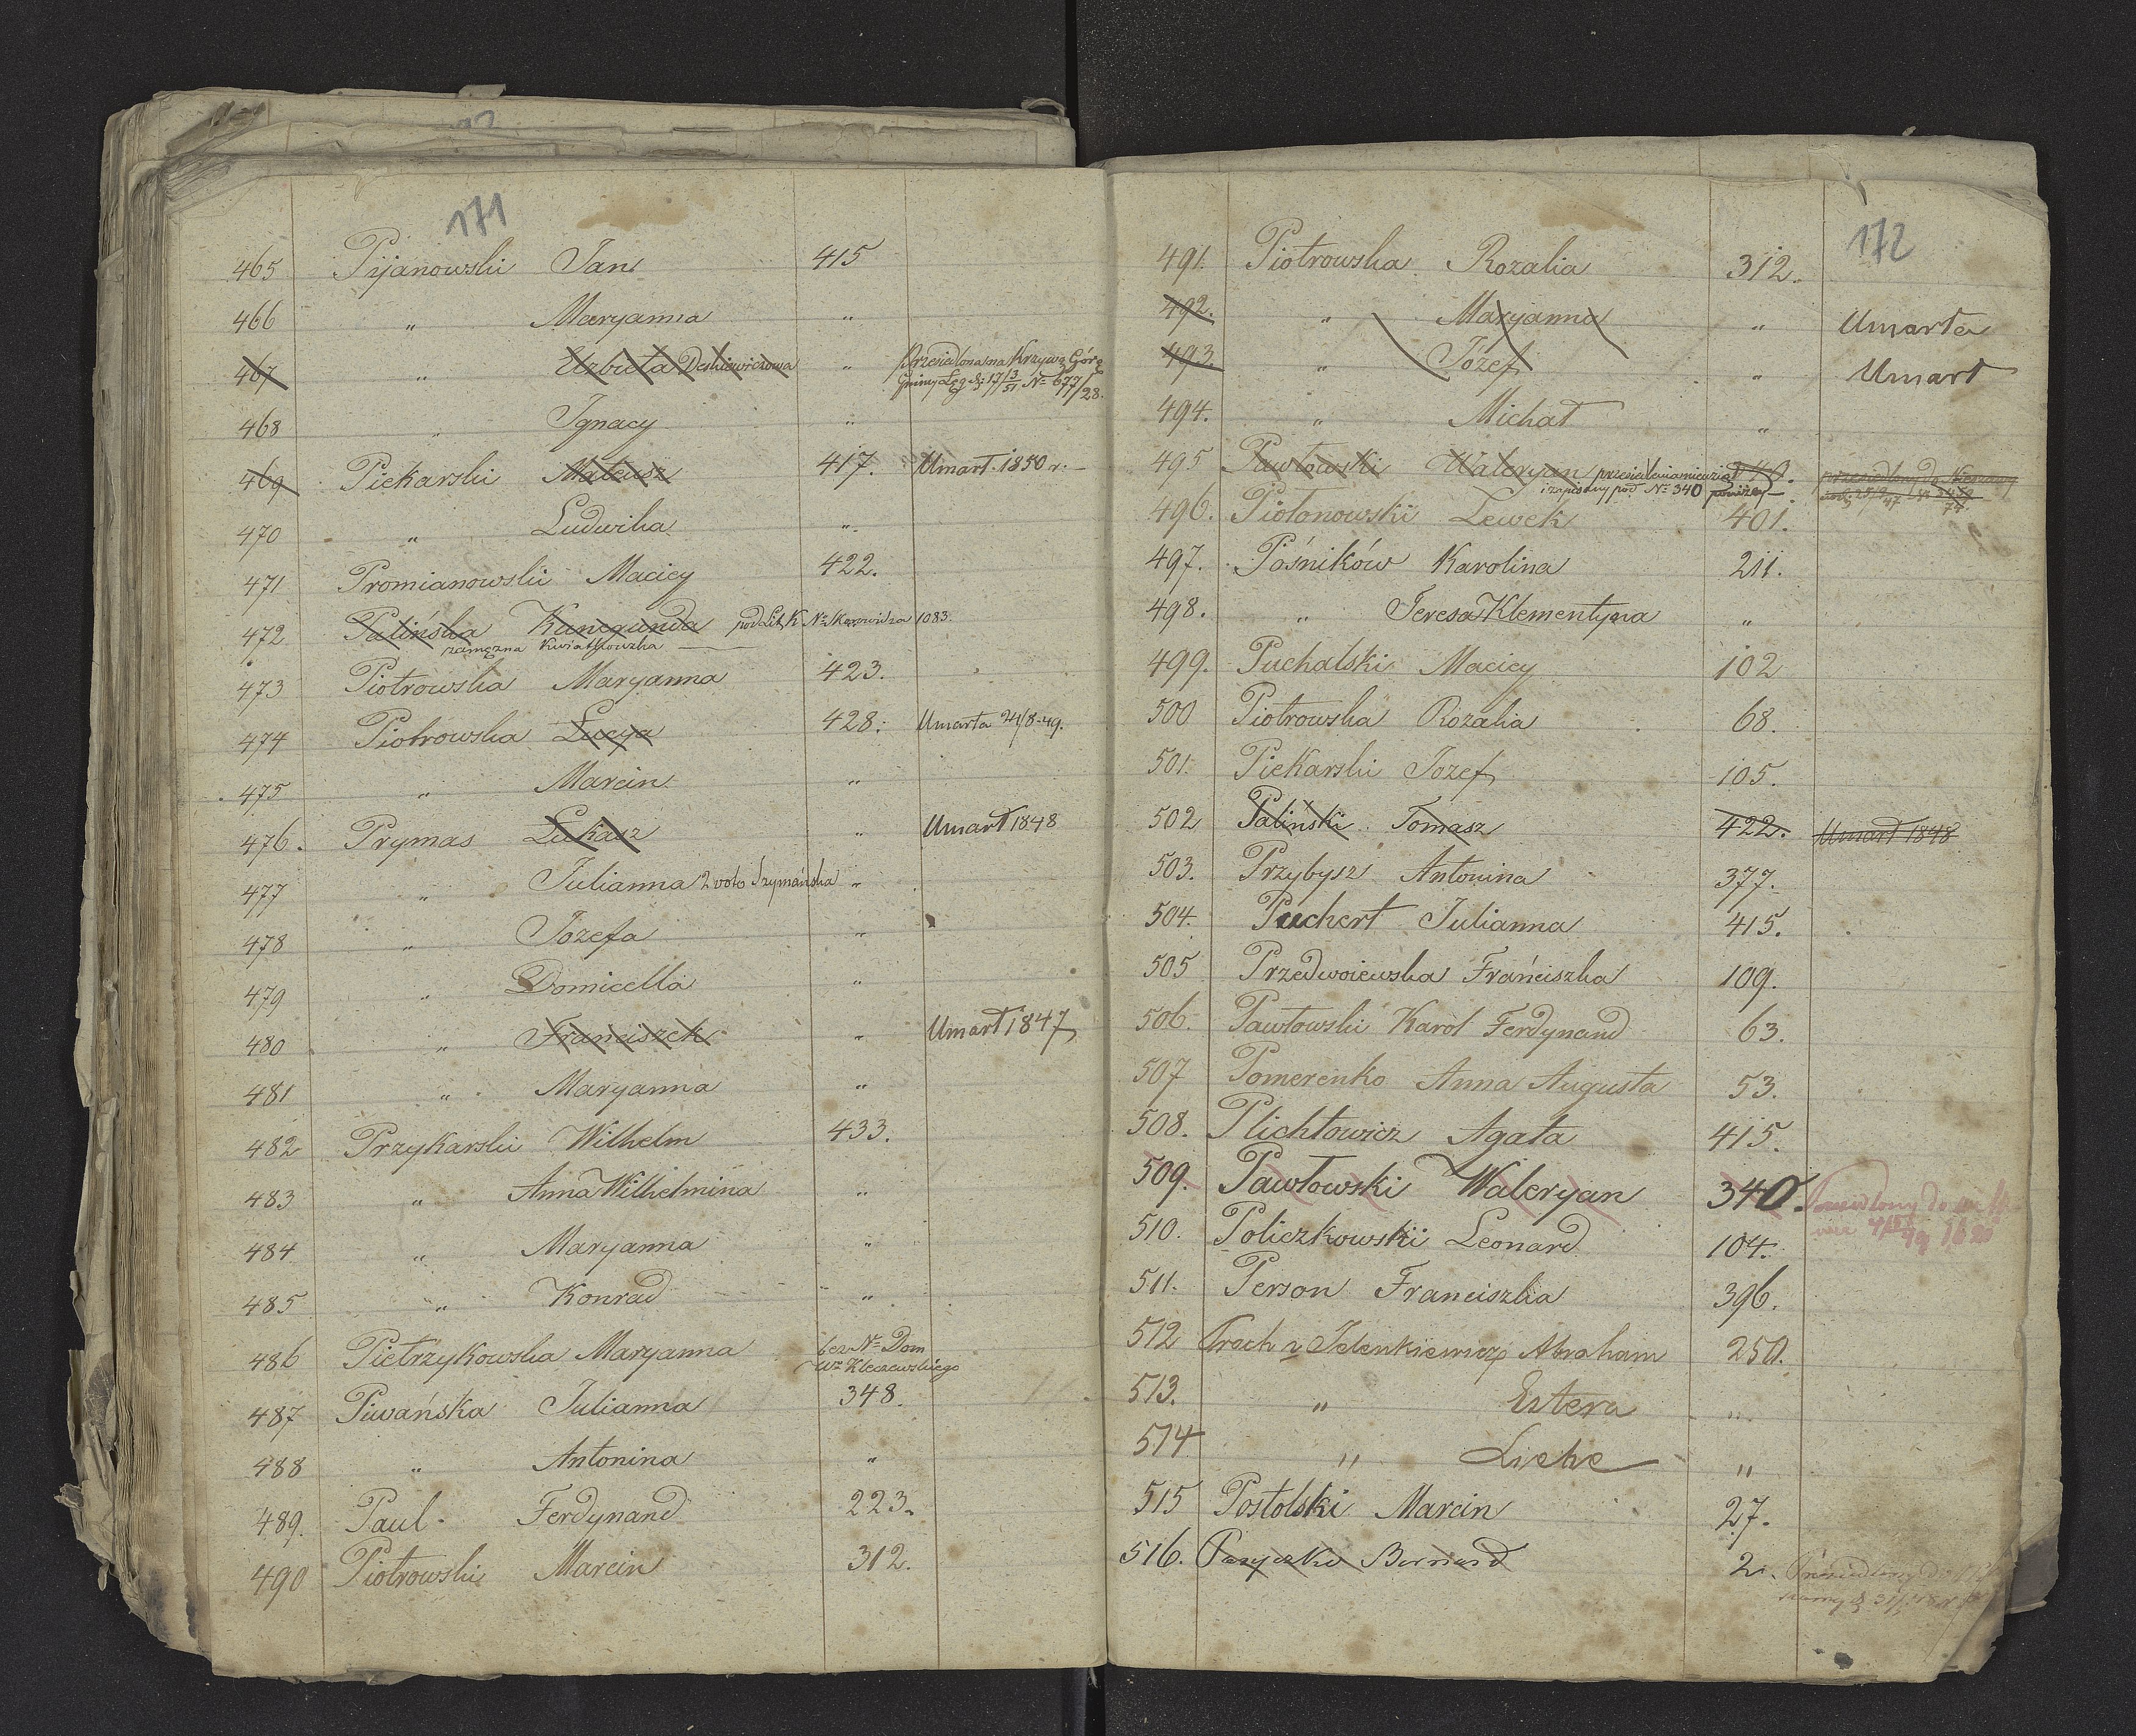 171
465 Pijanowski Jan 415
466 " Maryanna "
467 " Elzbieta Deskiewiczowa " Przesiedlona na Krzywą Górę
Gminy Łęg d. 17/3 51 No 677/28.
468 " Ignacy "
469 Piekarski Mateusz 417. Umarł. 1850 r.
470 " Ludwika "
471 Promianowski Maciey 422.
472 Palińska Kunegunda pod Lit. K. No Skorowidza 1083.
zamęzna Kwiatkowska
473 Piotrowska Maryanna 423.
474 Piotrowska Łucya 428. Umarła 24/8-49.
475 " Marcin "
476. Prymas Łukasz " Umarł 1848
477 " Julianna 2 voto Szymańska "
478 " Józefa "
479 " Domicella "
480 " Franciszek " Umarł 1847
481 " Maryanna "
482 Przykarski Wilhelm 433.
483 " Anna Wilhelmina "
484 " Maryanna "
485 " Konrad "
486 Pietrzykowska Maryanna bez No Dom
Wo Kleczewskiego
487 Piwańska Julianna 348.
488 " Antonina "
489. Paul. Ferdynand 223.
490 Piotrowski Marcin 312.
172
491. Piotrowska Rozalia 312.
492. " Maryanna " Umarła
493. " Józef " Umarł
494. " Michał "
495 Pawłowski Waleryan przesiedlenia niewziął przesiedlony do Nieszawy
i zapisany pod No 340 poniżey
496. Piotonowski Lewek 401.
497. Pośników Karolina 211.
498. " Teresa Klementyna "
499. Puchalski Maciey 102
500 Piotrowska Rozalia 68.
501. Piekarski Jozef 105.
502 Paliński Tomasz 422. Umarł 1848
503. Przybysz Antonina 377.
504. Puchert Julianna 415.
505 Przedwoiewska Franciszka 109.
506. Pawłowski Karol Ferdynand 63.
507 Pomerenko Anna Augusta 53.
508. Plichtowicz Agata 415.
509. Pawłowski Waleryan 340.
510. Policzkowski Leonard 104.
511. Person Franciszka 396.
512 Proch v Jelenkiewicz Abraham 250.
513. " Estera "
514 " Liehe "
515 Postolski Marcin 27.
516. Paszyczka Bernard 2. Przesiedlony do